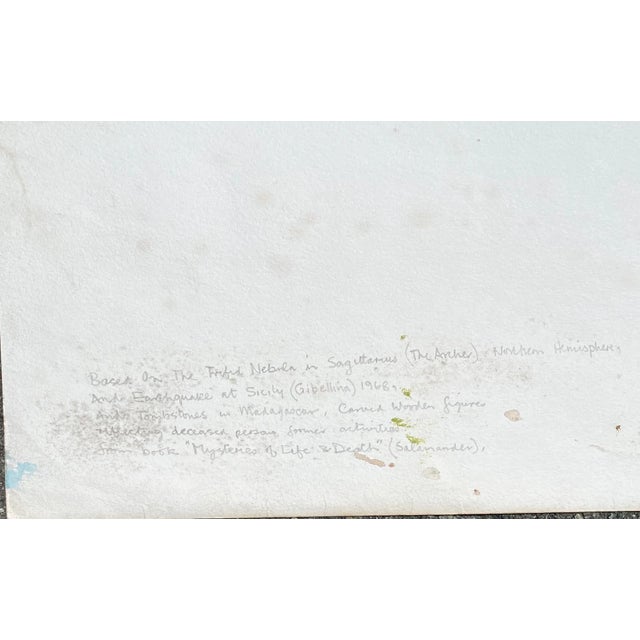 Based On The Trifid Nebula in Sagittarius (The Archer) Northern Hemisphere,
And Earthquake at Sicily (Gibellina) 1968,
And Tombstones in Madagascar, Carved Wooden figures
reflecting deceased persons former activities
from book "Mysteries of Life & Death" (Salamander),